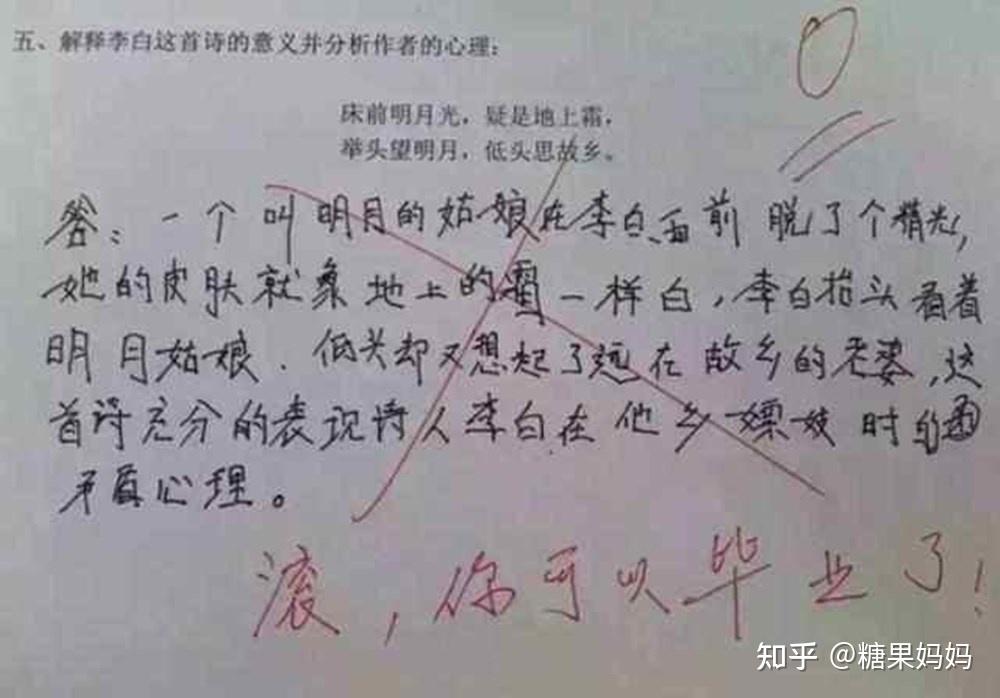 五、解释李白这首诗的意义并分析作者的心理:
床前明月光，疑是地上霜，
举头望明月，低头思故乡。
0
答：一个叫明月的姑娘在李白面前脱了个精光，
她的皮肤就象地上的霜一样白，李白抬头看着
明月姑娘．低头却又想起了远在故乡的老婆，这
首诗充分的表现诗人李白在他乡嫖妓时的
矛盾心理。
滚，你可以毕业了！
知乎 @糖果妈妈